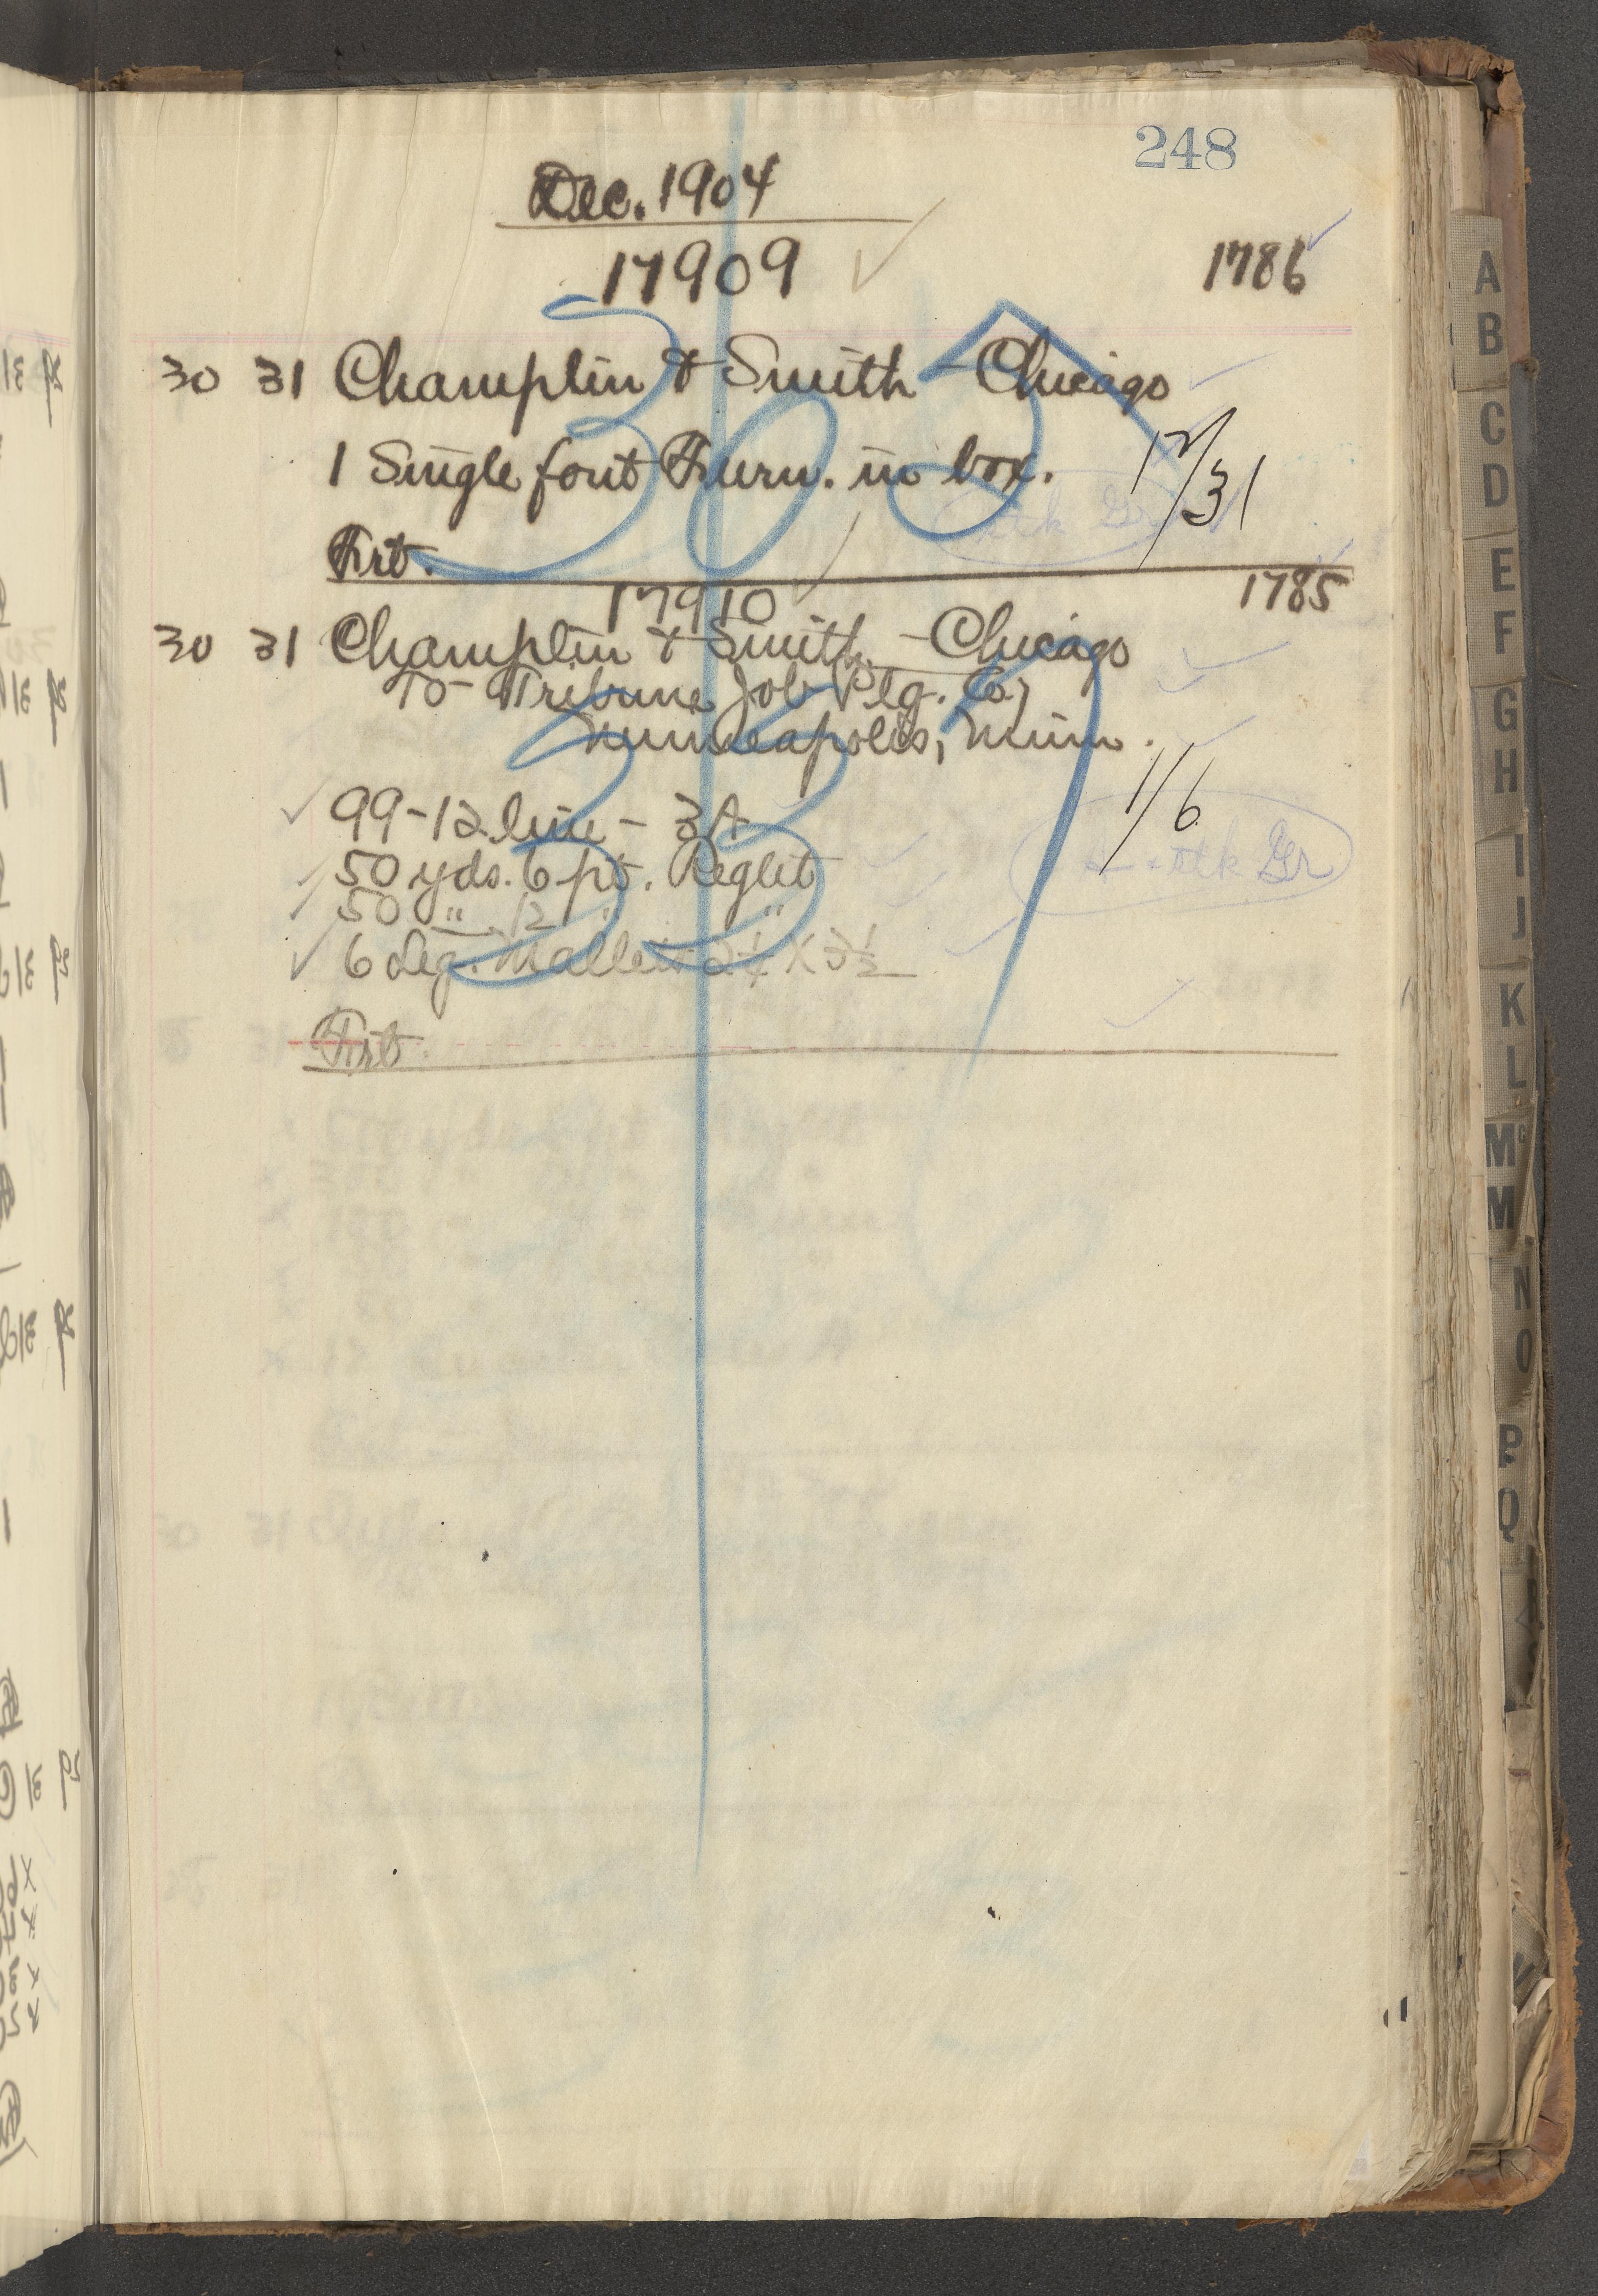 248
Dec. 1904
17909
1786
30 31 Champlin & Smith - Chicago
1 Single font Furn. in box.
12/31
Frt.
305
17910
1785
30 31 Champlin & Smith - Chicago
To - Tribune Job Ptg. Co,
Minneapolis, Minn.
99-12 line - 3A
1/6
50 yds. 6 pt. Reglet
50 " 12 " "
6 Lig. Mallets 2¼ X 3½
Frt.
337
A
B
C
D
E
F
G
H
I
J
K
L
Mc
M
N
O
P
Q